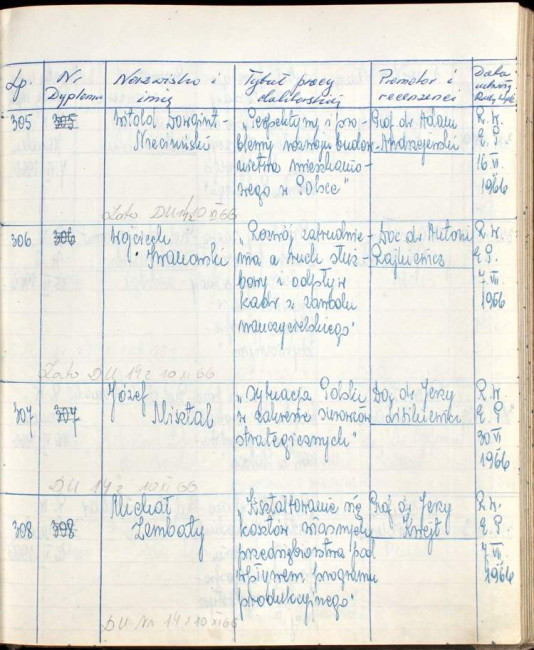 Lp. Nr Dyplomu Nazwisko i imię Tytuł pracy doktorskiej Promotor i recenzenci Data uchwały Rady Wydz.
305 305 Witold Dowgint- „Perspektywy i pro- Prof. dr Adam R. W.
Nieciuński blemy rozwoju budow- Andrzejewski E. P.
nictwa mieszkanio- 16 VI
wego w Polsce” 1966
DU 10 XI 66
306 306 Wojciech „Rozwój zatrudnie- Doc dr Antoni R. W.
Iwanowski nia a ruch służ- Rajkiewicz E. P.
bowy i odpływ 7 VII
kadr z zawodu 1966
nauczycielskiego”
DU 14 z 10 XI 66
307 307 Józef „Sytuacja Polski Doc dr Jerzy R. W.
Misztal w zakresie surowców E. P.
strategicznych” 30 VI
1966
DU 14 z 10 XI 66
308 308 Michał „Kształtowanie się Prof. dr Jerzy R. W.
Zembaty kosztów własnych Krejt E. P.
przedsiębiorstwa pod 7 VII
wpływem programu 1966
produkcyjnego”
DU Nr 14 z 10 XI 66